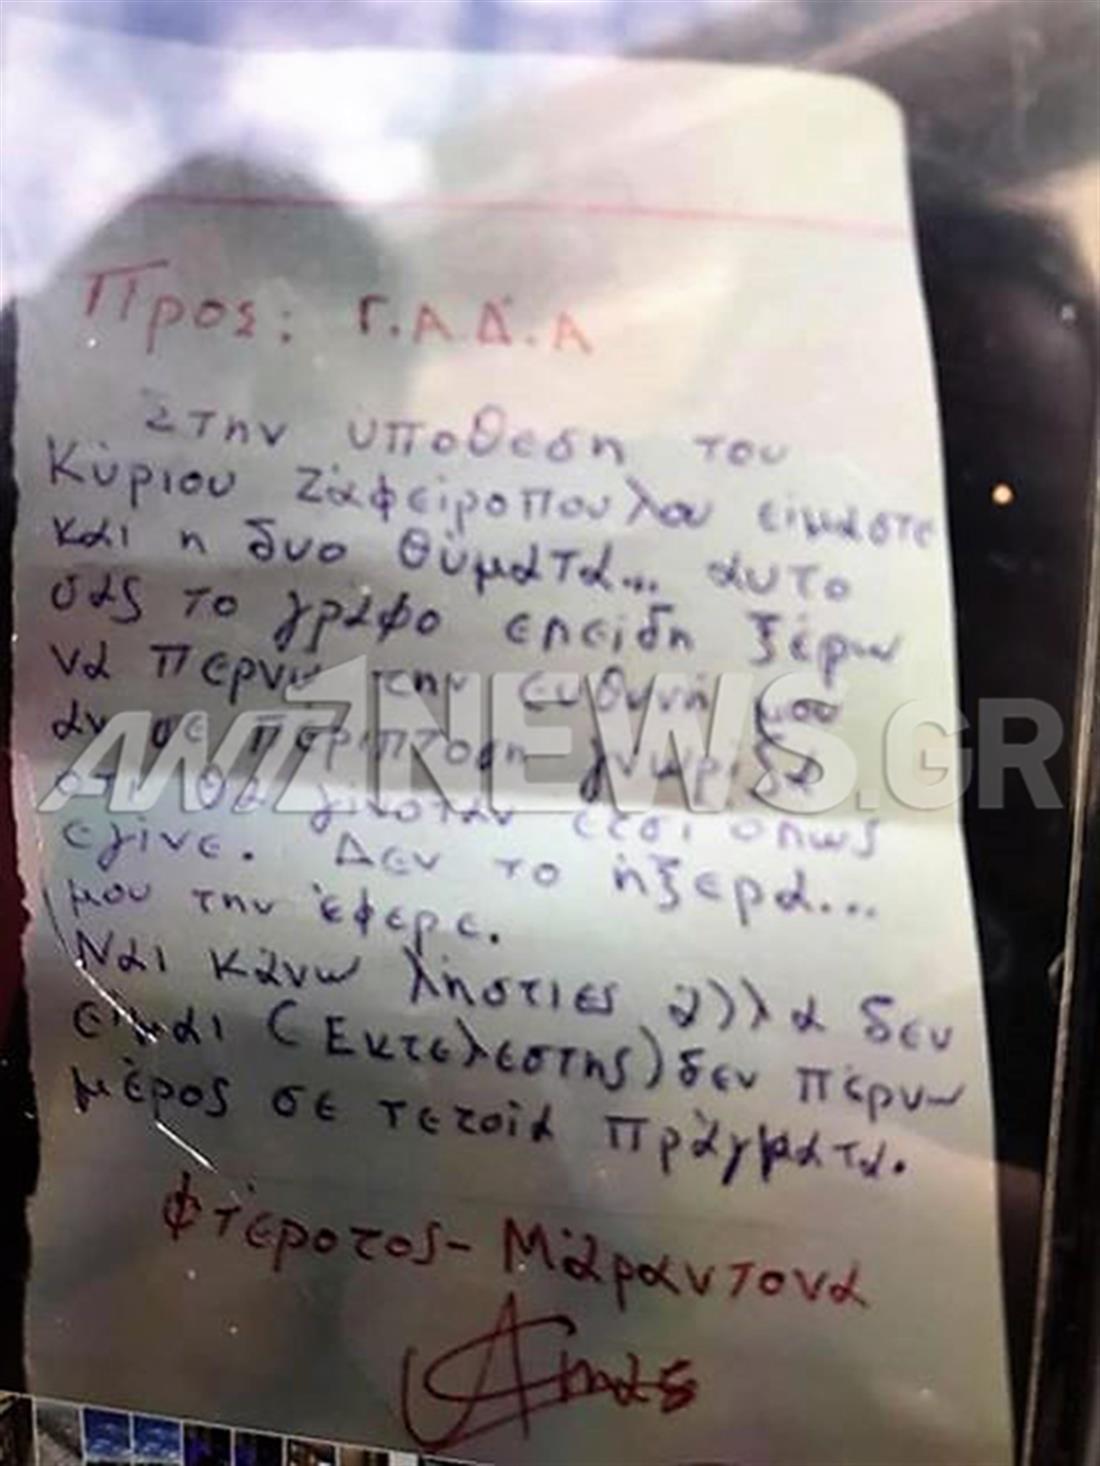 Προς: Γ.Α.Δ.Α
Στην ύποθεση του
Κύριου Ζάφειροπουλου είμαστε
και η δυο θύματα... αυτο
σας το γράφο επειδη ξέρω
να περνω την ευθυνή μου
αν σε περίπτοση γνωριζα
οτι θα γινοταν ετσι οπως
εγινε. Δεν το ήξερα...
μου την έφερε.
Ναι κάνω λήστιες αλλα δεν
ειμαι (Εκτελεστης) δεν πέρνω
μέρος σε τετοια πράγματα.
Φτέροτος - Μάραντονα
ANT1NEWS.GR